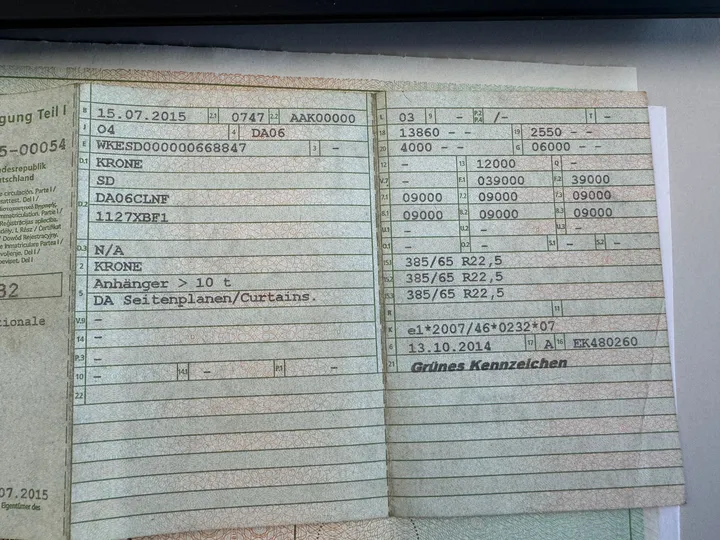 gung Teil I
5-00054
desrepublik
tschland
32
ionale
07.2015
Eigentümer des
B 15.07.2015 2.1 0747 2.2 AAK00000
J O4 4 DA06
E WKESD000000668847 3 -
D.1 KRONE
SD
D.2 DA06CLNF
1127XBF1
D.3 N/A
2 KRONE
5 Anhänger > 10 t
DA Seitenplanen/Curtains.
V.9 -
14 -
P.3 -
10 - 14.1 - P.1 -
22
L 03 9 - P.2 P.4 /- T -
18 13860 - - 19 2550 - -
20 4000 - - G 06000 - -
12 - 13 12000 Q -
V.7 - F.1 039000 F.2 39000
7.1 09000 7.2 09000 7.3 09000
8.1 09000 8.2 09000 8.3 09000
U.1 - U.2 - U.3 -
O.1 - O.2 - S.1 - S.2 -
15.1 385/65 R22,5
15.2 385/65 R22,5
15.3 385/65 R22,5
R 11
K e1*2007/46*0232*07
6 13.10.2014 17 A 16 EK480260
21 Grünes Kennzeichen